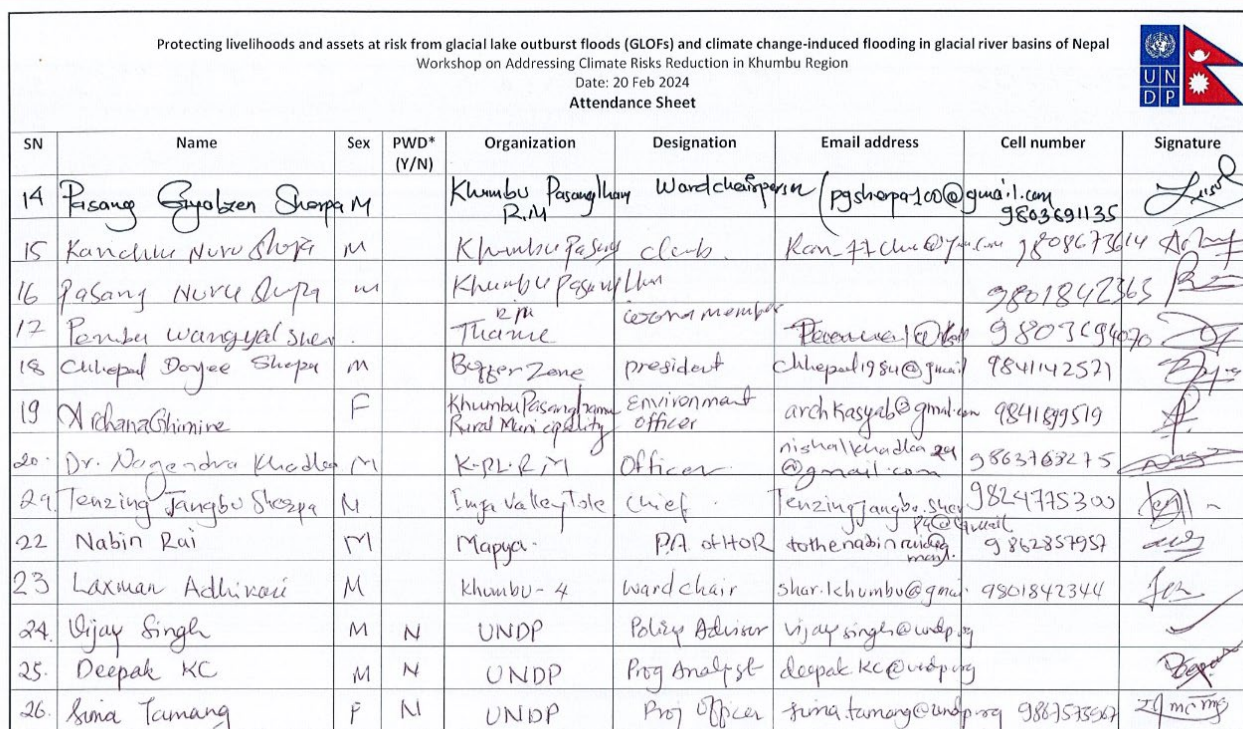 Protecting livelihoods and assets at risk from glacial lake outburst floods (GLOFs) and climate change-induced flooding in glacial river basins of Nepal
Workshop on Addressing Climate Risks Reduction in Khumbu Region
Date: 20 Feb 2024
Attendance Sheet
U N
D P
SN Name Sex PWD* (Y/N) Organization Designation Email address Cell number Signature
14 Pasang Gyalzen Sherpa M Khumbu Pasanglham R.M Ward chairperson pgsherpa100@gmail.com 9803691135
15 Nuru M Khumbu Pasang 9808673614
16 Pasang Nuru M Khumbu Pasang 9801842363
17 Pemba Wangyal Sher Thame member
18 Chhepal Dorjee Sherpa M Buffer Zone president 9841142521
19 Archana Ghimire F Khumbu Pasanglhamu Rural Municipality Environment officer archkasyab@gmail.com 9841899519
20. Dr. Nagendra Khadka M K.PL.R.M Officer nishalkhadka29@gmail.com 9863763275
Tenzing Jangbu Sherpa M Imja Valley Tole Chief 9824775300
22 Nabin Rai M Mapya. P.A. of HOR 9862857957
23 Laxman Adhikari M Khumbu-4 Ward chair 9801842344
24. Vijay Singh M N UNDP Policy Advisor vijay.singh@undp.org
25. Deepak KC M N UNDP Prog Analyst deepak.KC@undp.org
26. Sima Tamang F N UNDP Proj Officer sima.tamang@undp.org